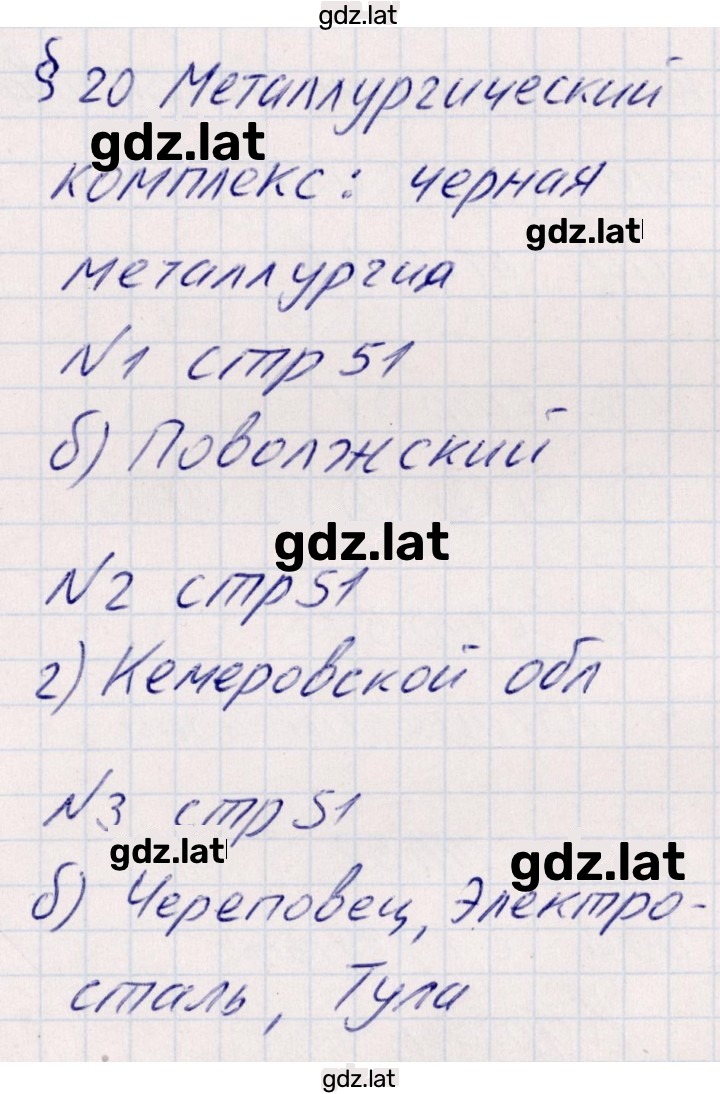 gdz.lat
§ 20 Металлургический
gdz.lat
комплекс: черная
gdz.lat
металлургия
N1 стр 51
б) Поволжский
gdz.lat
N2 стр 51
г) Кемеровской обл
N3 стр 51
gdz.lat
gdz.lat
б) Череповец, Электро-
сталь, Тула
gdz.lat